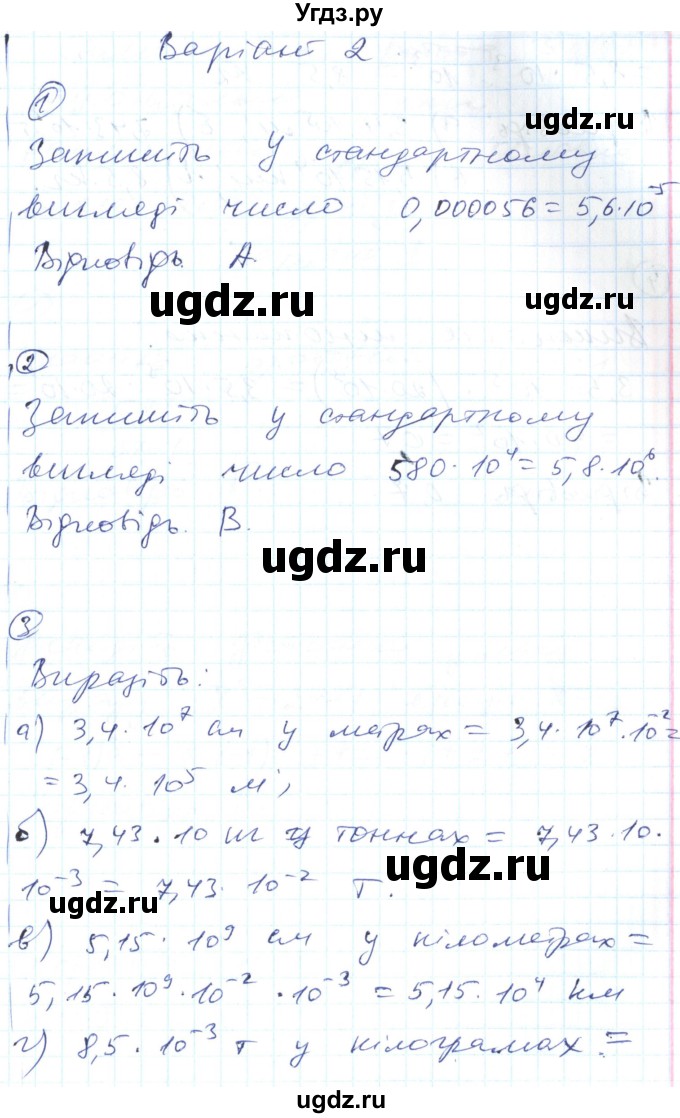 Угдз.ру
Варіант 2
1
Запишіть у стандартному
вигляді число 0,000056 = 5,6·10⁻⁵
Відповідь. А.
ugdz.ru
ugdz.ru
ugdz.ru
2
Запишіть у стандартному
вигляді число 580·10⁴ = 5,8·10⁶.
Відповідь. В.
ugdz.ru
3
Виразіть:
а) 3,4·10⁷ см у метрах = 3,4·10⁷·10⁻² =
= 3,4·10⁵ м;
б) 7,43·10 кг у тоннах = 7,43·10·
10⁻³ = 7,43·10⁻² т.
ugdz.ru
ugdz.ru
в) 5,15·10⁹ см у кілометрах =
5,15·10⁹·10⁻²·10⁻³ = 5,15·10⁴ км
г) 8,5·10⁻³ т у кілограмах =
ugdz.ru